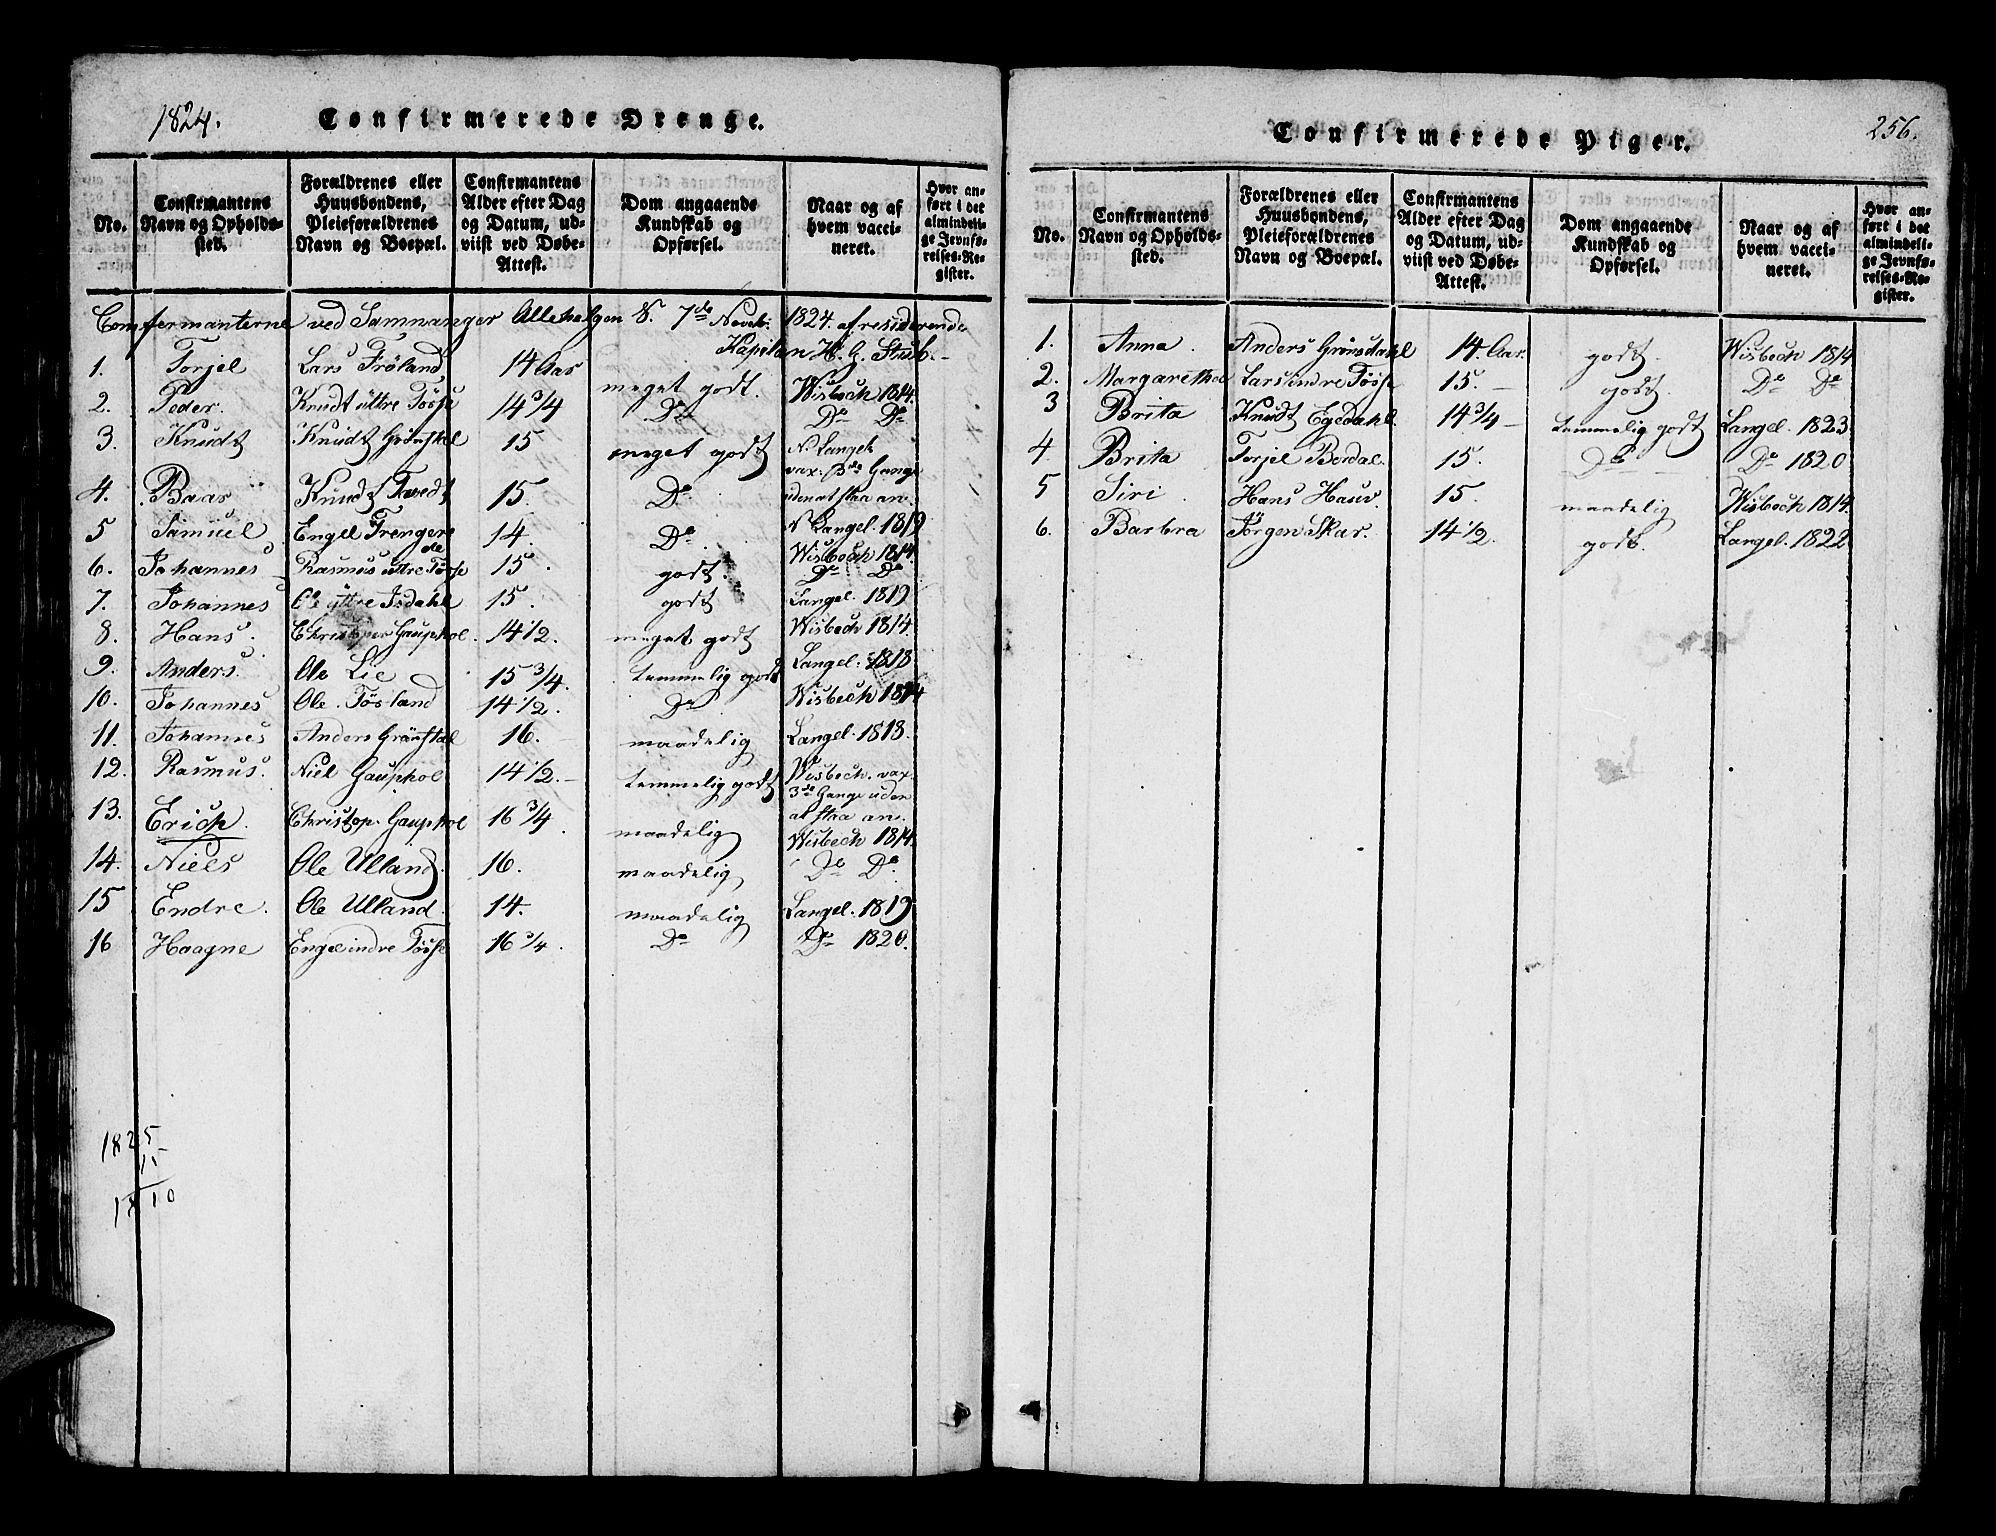 1824.
Confirmerede Drenge.
No.
Confirmantens Navn og Opholds-sted.
Forældrenes eller Huusbondens, Pleieforældrenes Navn og Boepæl.
Confirmantens Alder efter Dag og Datum, ud-viist ved Døbe-Attest.
Dom angaaende Kundskab og Opførsel.
Naar og af hvem vacci-neret.
Hvor an-ført i det almindeli-ge Jevnfø-relses-Re-gister.
Comfermanterne ved Samnanger Allehelgen S. 7de Novebr. 1824. af residerende
Kapelan H. G. Stub.
1. Torjel Lars Frøland 14 Aar meget godt. Wisbech 1814.
2. Peder. Knudt ùttre Tøsse 14 3/4 Do Do Do
3. Knudt Knudt Grønsdal 15 meget godt N. Langel vax: 3de Gange uden at slaa an.
4. Baar Knudt Tvedt 15. Do
5 Samuel Engel Trengere 14. Do N Langel. 1819
6. Johannes Rasmus uttre Tøsse 15. godt. Wisbech 1814. Do Do
7. Johannes Ole ÿttre Isdahl 15. godt Langel. 1819
8. Hans. Christoper Gauphol. 14 1/2. meget godt Wisbech 1814.
9. Anders. Ole Lie 15 3/4. temmelig godt Langel. 1818
10. Johannes Ole Tøsland 14 1/2. Do Wisbech 1814
11. Johannes Anders Grønsdal 16. maadelig Langel. 1818.
12. Rasmus. Niel Gauphol 14 1/2. temmelig godt Wisbech. vax. 3de Gange uden at slaa an.
13. Erich. Christop. Gauphol 16 3/4. maadelig Wisbech 1814.
14. Niels Ole Ulland. 16. maadelig Do Do.
15 Endre. Ole Ulland. 14. maadelig Langel. 1819
16 Haagne Engel indre Tøsse 16 3/4. Do Do 1820.
1825
15
1810
Confirmerede Piger.
256.
No.
Confirmantens Navn og Opholds-sted.
Forældrenes eller Huusbondens, Pleieforældrenes Navn og Boepæl.
Confirmantens Alder efter Dag og Datum, ud-viist ved Døbe-Attest.
Dom angaaende Kundskab og Opførsel.
Naar og af hvem vacci-neret.
Hvor an-ført i det almindeli-ge Jevnfø-relses-Re-gister.
1. Anna. Anders Grønsdahl 14. Aar. godt. Wisbech 1814
2. Margarethe Lars indre Tøsse 15. godt. Do Do
3 Brita Knudt Egedahl. 14 3/4 temmelig godt Langel. 1823.
4 Brita Torjel Bordal. 15. Do Do 1820
5 Siri Hans Hauv. 15. maadelig Wisbech 1814.
6. Barbra Jörgen Skar. 14 1/2. godt. Langel. 1822